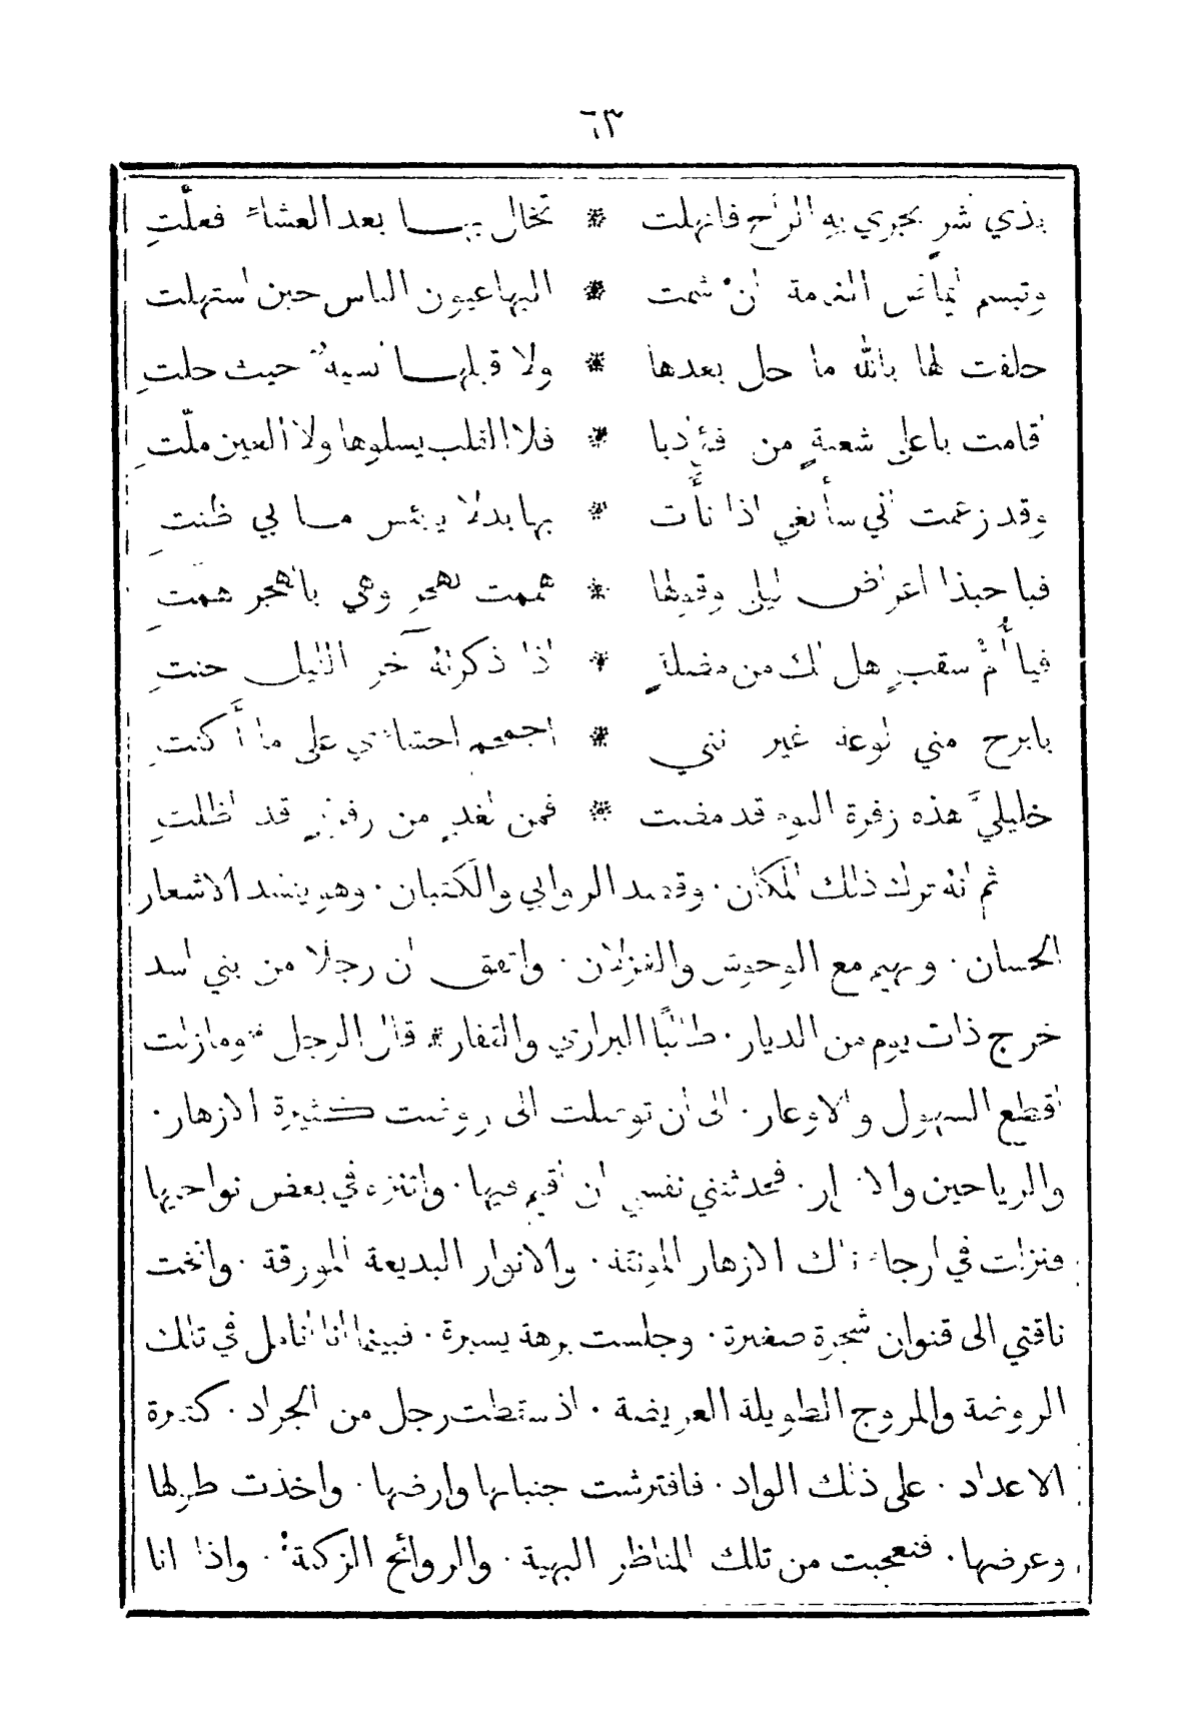 ٦٣
بذي شر يجري به الراح فانهلت * تخال بهـا بعد العشاء فعلّتِ
وتبسم ايماض الغمامة ان سمت * اليها عيون الناس حين استهلت
حلفت لها بالله ما حل بعدها * ولا قبلهـا انسية حيث حلتِ
اقامت باعلى شعبةٍ من فؤادها * فلا القلب يسلوها ولا العين ملّتِ
وقد زعمت اني سأبغي اذا نأَت * بها بدلا يا بئس مـا بي ظنتِ
فيا حبذا اعراض ليلى وقولها * هممت بهجرٍ وهي بالهجر همتِ
فيا أُمّ سقبٍ هل لك من مضلةٍ * اذا ذكرته آخر الليل حنتِ
بابرح مني لوعة غير انني * اجمجم احشائي على ما أَكنتِ
خليليَّ هذه زفرة اليوم قد مضت * فمن لغدٍ من زفرةٍ قد اظلتِ
ثم انه ترك ذلك المكان . وقصد الروابي والكثبان . وهو ينشد الاشعار
الحسان . ويهيم مع الوحوش والغزلان . واتفق ان رجلا من بني اسد
خرج ذات يوم من الديار . طالبًا البراري والقفار * قال الرجل * وما زلت
اقطع السهول والاوعار . الى ان توصلت الى روضة كثيرة الازهار .
والرياحين . فحدثتني نفسي ان اقيم فيها . واتنزه في بعض نواحيها
فنزلت في ارجاء تلك الازهار المونقة . والانوار البديعة المورقة . وانخت
ناقتي الى قنوان شجرة صغيرة . وجلست برهة يسيرة . فبينما انا اتأمل في تلك
الروضة والمروج الطويلة العريضة . اذ سقطت رجل من الجراد . كثيرة
الاعداد . على ذلك الواد . فافترشت جنباتها وارضها . واخذت طولها
وعرضها . فتعجبت من تلك المناظر البهية . والروائح الزكية . واذا انا